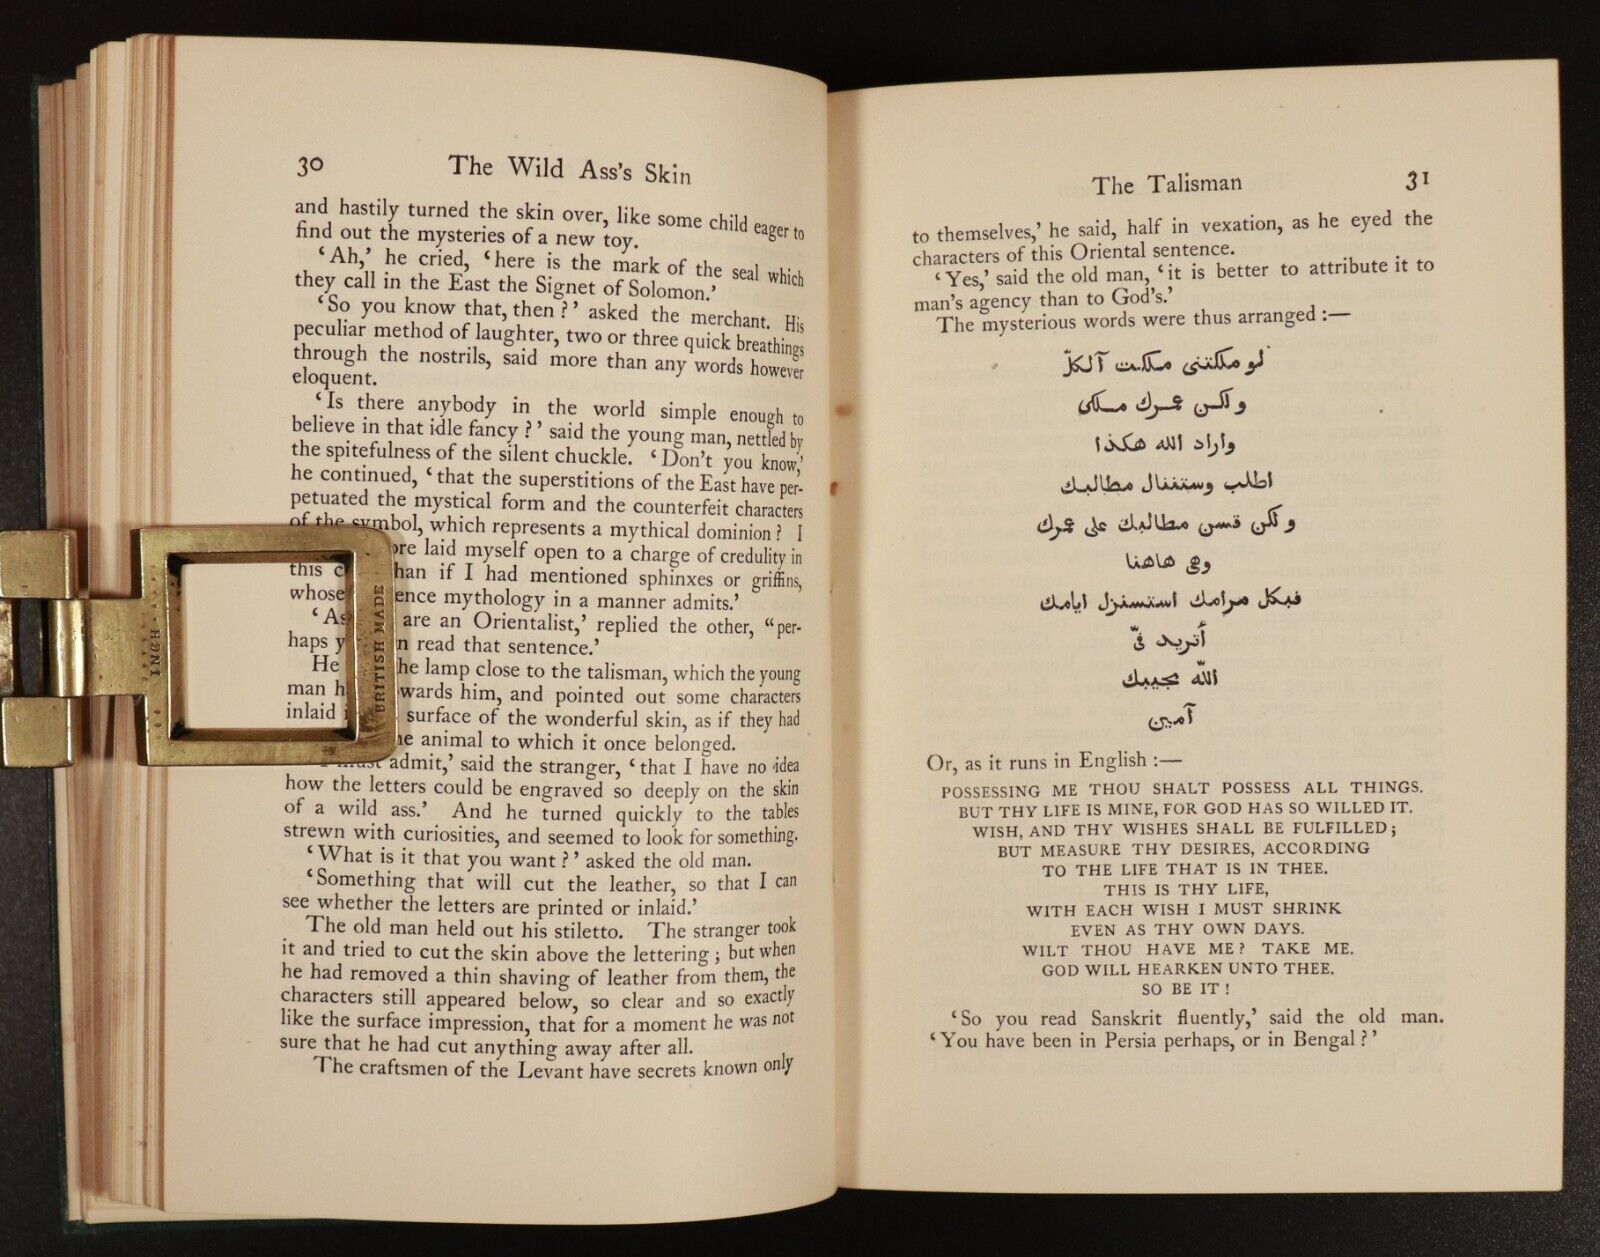 30 The Wild Ass's Skin
and hastily turned the skin over, like some child eager to
find out the mysteries of a new toy.
‘Ah,’ he cried, ‘here is the mark of the seal which
they call in the East the Signet of Solomon.’
‘So you know that, then?’ asked the merchant. His
peculiar method of laughter, two or three quick breathings
through the nostrils, said more than any words however
eloquent.
‘Is there anybody in the world simple enough to
believe in that idle fancy?’ said the young man, nettled by
the spitefulness of the silent chuckle. ‘Don't you know,’
he continued, ‘that the superstitions of the East have per-
petuated the mystical form and the counterfeit characters
of the symbol, which represents a mythical dominion? I
laid myself open to a charge of credulity in
this if I had mentioned sphinxes or griffins,
whose mythology in a manner admits.’
are an Orientalist,’ replied the other, “per-
haps read that sentence.’
He lamp close to the talisman, which the young
man him, and pointed out some characters
inlaid surface of the wonderful skin, as if they had
animal to which it once belonged.
admit,’ said the stranger, ‘that I have no idea
how the letters could be engraved so deeply on the skin
of a wild ass.’ And he turned quickly to the tables
strewn with curiosities, and seemed to look for something.
‘What is it that you want?’ asked the old man.
‘Something that will cut the leather, so that I can
see whether the letters are printed or inlaid.’
The old man held out his stiletto. The stranger took
it and tried to cut the skin above the lettering; but when
he had removed a thin shaving of leather from them, the
characters still appeared below, so clear and so exactly
like the surface impression, that for a moment he was not
sure that he had cut anything away after all.
The craftsmen of the Levant have secrets known only
1 INCH
BRITISH MADE
The Talisman 31
to themselves,’ he said, half in vexation, as he eyed the
characters of this Oriental sentence.
‘Yes,’ said the old man, ‘it is better to attribute it to
man's agency than to God's.’
The mysterious words were thus arranged:—
لو ملكتنى ملكت آلكلّ
ولكن عمرك ملكى
واراد الله هكذا
اطلب وستننال مطالبك
ولكن قسن مطالبك على عمرك
وهى هاهنا
فبكل مرامك استسنزل ايامك
أتريد فىّ
اللّه مجيبك
آمين
Or, as it runs in English:—
POSSESSING ME THOU SHALT POSSESS ALL THINGS.
BUT THY LIFE IS MINE, FOR GOD HAS SO WILLED IT.
WISH, AND THY WISHES SHALL BE FULFILLED;
BUT MEASURE THY DESIRES, ACCORDING
TO THE LIFE THAT IS IN THEE.
THIS IS THY LIFE,
WITH EACH WISH I MUST SHRINK
EVEN AS THY OWN DAYS.
WILT THOU HAVE ME? TAKE ME.
GOD WILL HEARKEN UNTO THEE.
SO BE IT!
‘So you read Sanskrit fluently,’ said the old man.
‘You have been in Persia perhaps, or in Bengal?’